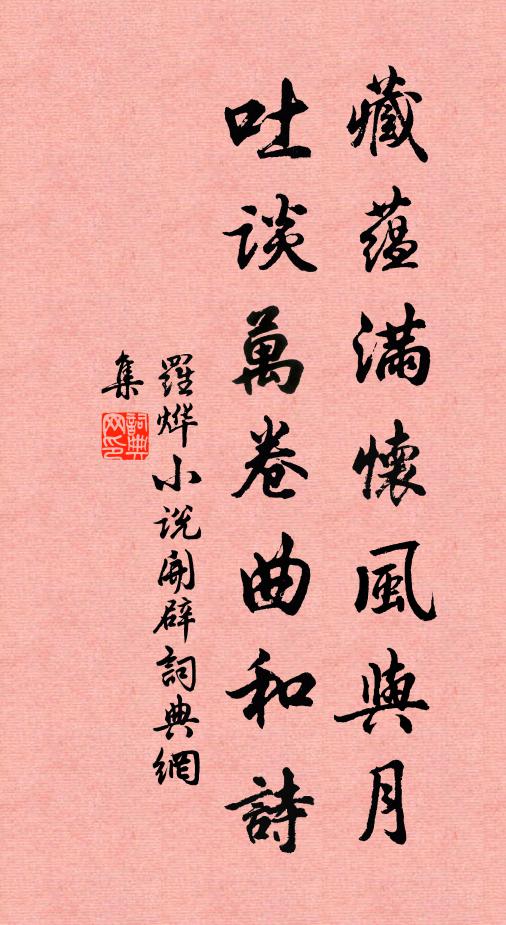 藏蘊滿懷風與月
吐談萬卷曲和詩
羅燁小说開辟詞典網
集
詞典网印